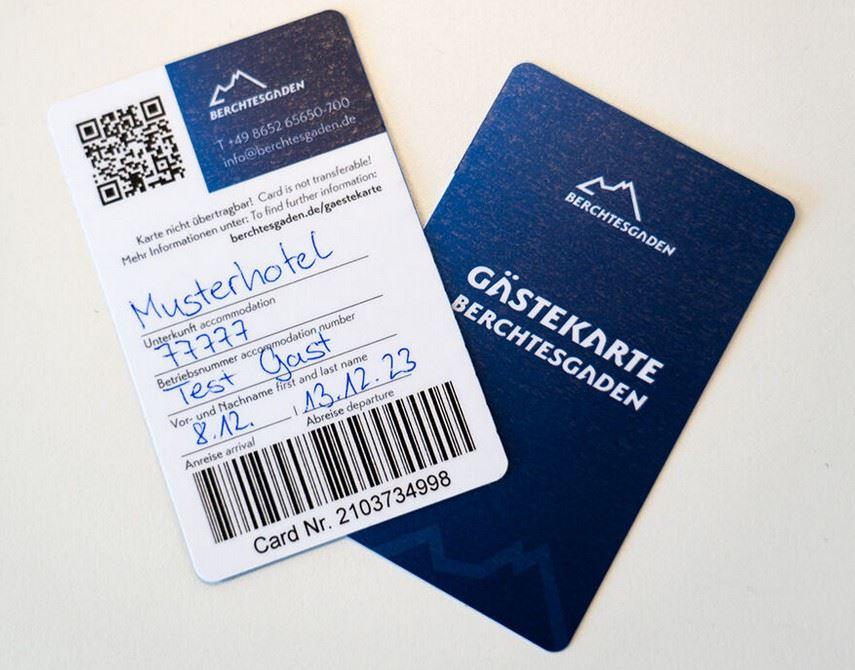 BERCHTESGADEN
T +49 8652 65650-700
info@berchtesgaden.de
Karte nicht übertragbar! Card is not transferable!
Mehr Informationen unter: To find further information:
berchtesgaden.de/gaestekarte
Musterhotel
Unterkunft accommodation
77777
Betriebsnummer accommodation number
Test Gast
Vor- und Nachname first and last name
8.12. | 13.12.23
Anreise arrival Abreise departure
Card Nr. 2103734998
BERCHTESGADEN
GÄSTEKARTE
BERCHTESGADEN